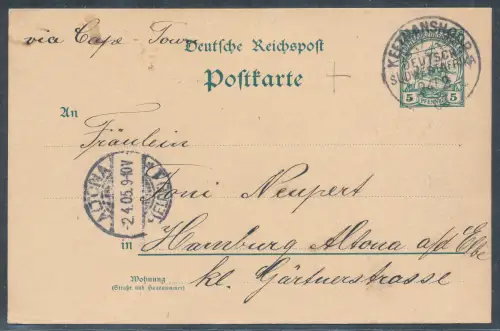 via Cape-Town
Deutsche Reichspost
Postkarte
KEETMANSHOOP
DEUTSCH
SÜDWESTAFRIKA
5 PFENNIG 5
An
Fräulein
Toni Neupert
ALTONA
-2.4.05.9-10V
(ELBE)
in Hamburg Altona a/d Elbe
Wohnung
(Straße und Hausnummer)
kl. Gärtnerstrasse